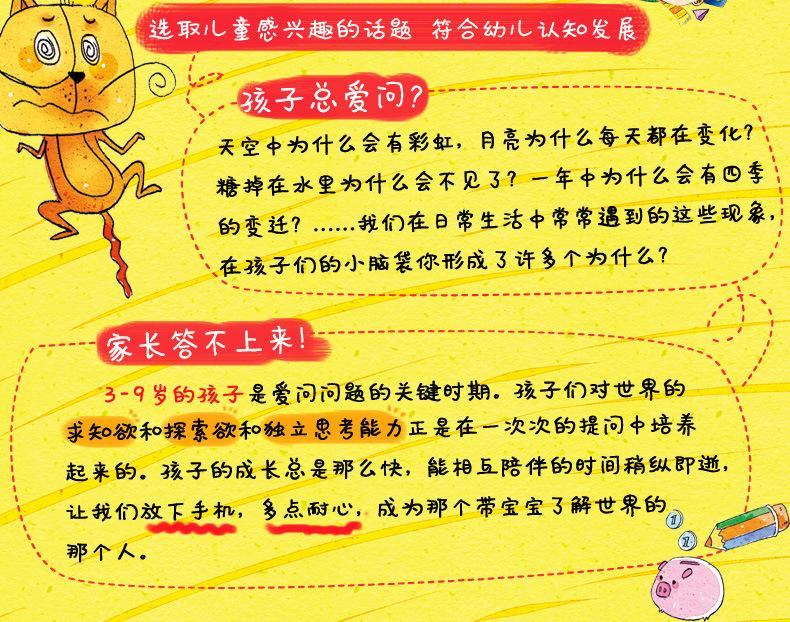 选取儿童感兴趣的话题 符合幼儿认知发展
孩子总爱问?
天空中为什么会有彩虹，月亮为什么每天都在变化?
糖掉在水里为什么会不见了? 一年中为什么会有四季
的变迁? ......我们在日常生活中常常遇到的这些现象，
在孩子们的小脑袋你形成了许多个为什么?
家长答不上来!
3-9岁的孩子是爱问问题的关键时期。孩子们对世界的
求知欲和探索欲和独立思考能力正是在一次次的提问中培养
起来的。孩子的成长总是那么快，能相互陪伴的时间稍纵即逝，
让我们放下手机，多点耐心，成为那个带宝宝了解世界的
那个人。
1
1